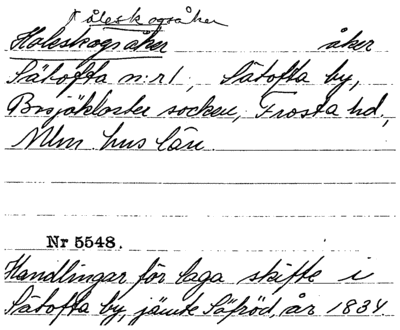 åleskogsåker
Holeskogsåker åker
Sätofta n:r 1, Sätofta by,
Bosjökloster socken, Frosta hd,
Mlm. hus län.
Nr 5548.
Handlingar för laga skifte i
Sätofta by, jämte Säfröd, år 1834